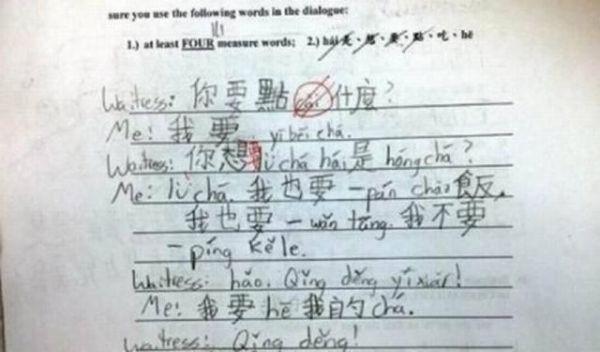 sure you use the following words in the dialogue:
1.) at least FOUR measure words; 2.) hái 是、想、要、點、吃、hē
Waitress: 你要點 cài 什麼？
Me: 我要 yī bēi chá.
Waitress: 你想要 lǜ chá hái 是 hóng chá?
Me: lǜ chá. 我也要一 pán chǎo 飯。
我也要一 wǎn tāng. 我不要
一 píng kě lè.
Waitress: hǎo. Qǐng děng yíxiàr!
Me: 我要 hē 我的 chá.
Waitress: Qǐng děng!